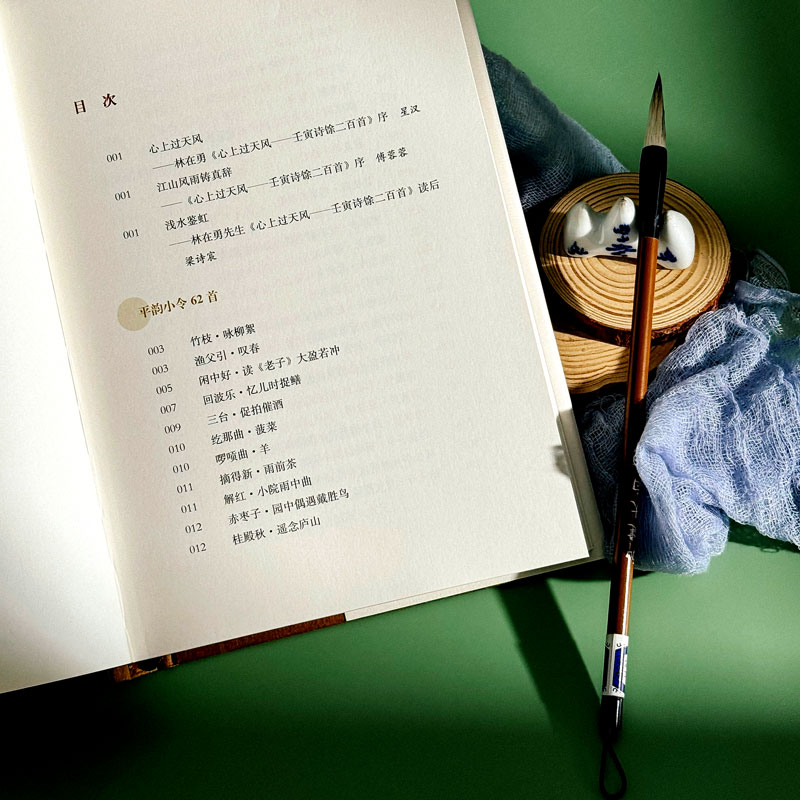 目 次
001 心上过天风
——林在勇《心上过天风——壬寅诗馀二百首》序 星汉
001 江山风雨铸真辞
——《心上过天风——壬寅诗馀二百首》序 傅蓉蓉
001 浅水鉴虹
——林在勇先生《心上过天风——壬寅诗馀二百首》读后
梁诗宸
平韵小令 62 首
003 竹枝·咏柳絮
003 渔父引·叹春
005 闲中好·读《老子》大盈若冲
007 回波乐·忆儿时捉鳝
009 三台·促拍催酒
010 纥那曲·菠菜
010 啰唝曲·羊
011 摘得新·雨前茶
011 解红·小院雨中曲
012 赤枣子·园中偶遇戴胜鸟
012 桂殿秋·遥念庐山